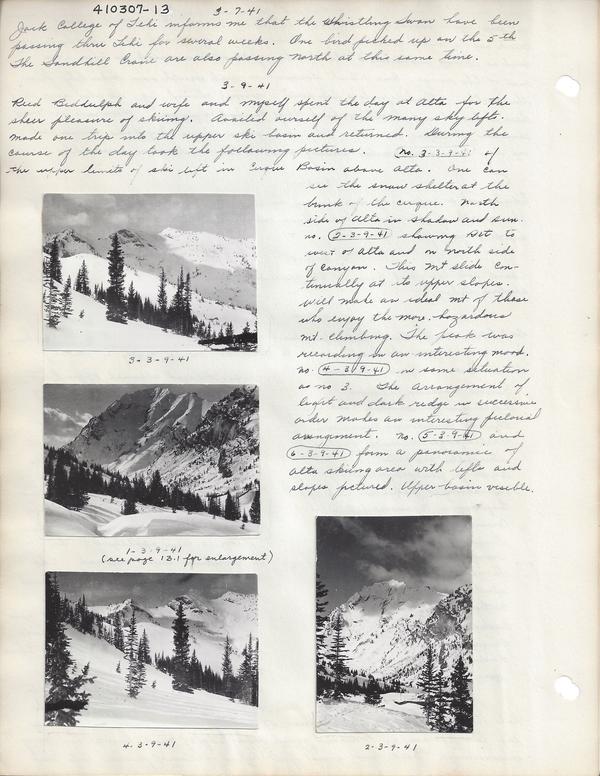 410307-13
3-7-41
Jack College of Lehi informs me that the Whistling Swan have been
passing thru Lehi for several weeks. One bird picked up on the 5th
The Sandhill Crane are also passing North at this same time.
3-9-41
Reed Biddulph and wife and myself spent the day at Alta for the
sheer pleasure of skiing. Availed ourself of the many sky lifts.
made one trip into the upper ski basin and returned. During the
course of the day took the following pictures. no. 3-3-9-41 of
the upper limits of ski lift in Basin above Alta. One can
see the snow shelter at the
brink of the cirque. North
side of Alta in shadow and sun.
no. 2-3-9-41 showing Mt to
west of Alta and on north side
of canyon. This Mt slide con-
tinually at its upper slopes.
Will make an ideal mt of those
who enjoy the more hazardous
mt. climbing. The peak was
recording in an interesting mood.
no. 4-3-9-41 in same situation
as no 3. The arrangement of
light and dark ridge in successive
order makes an interesting pictorial
arrangement. no. 5-3-9-41 and
6-3-9-41 form a panoramic of
Alta skiing area with lifts and
slopes pictured. Upper basin visible.
3-3-9-41
1-3-9-41
(see page 13.1 for enlargement)
4-3-9-41
2-3-9-41